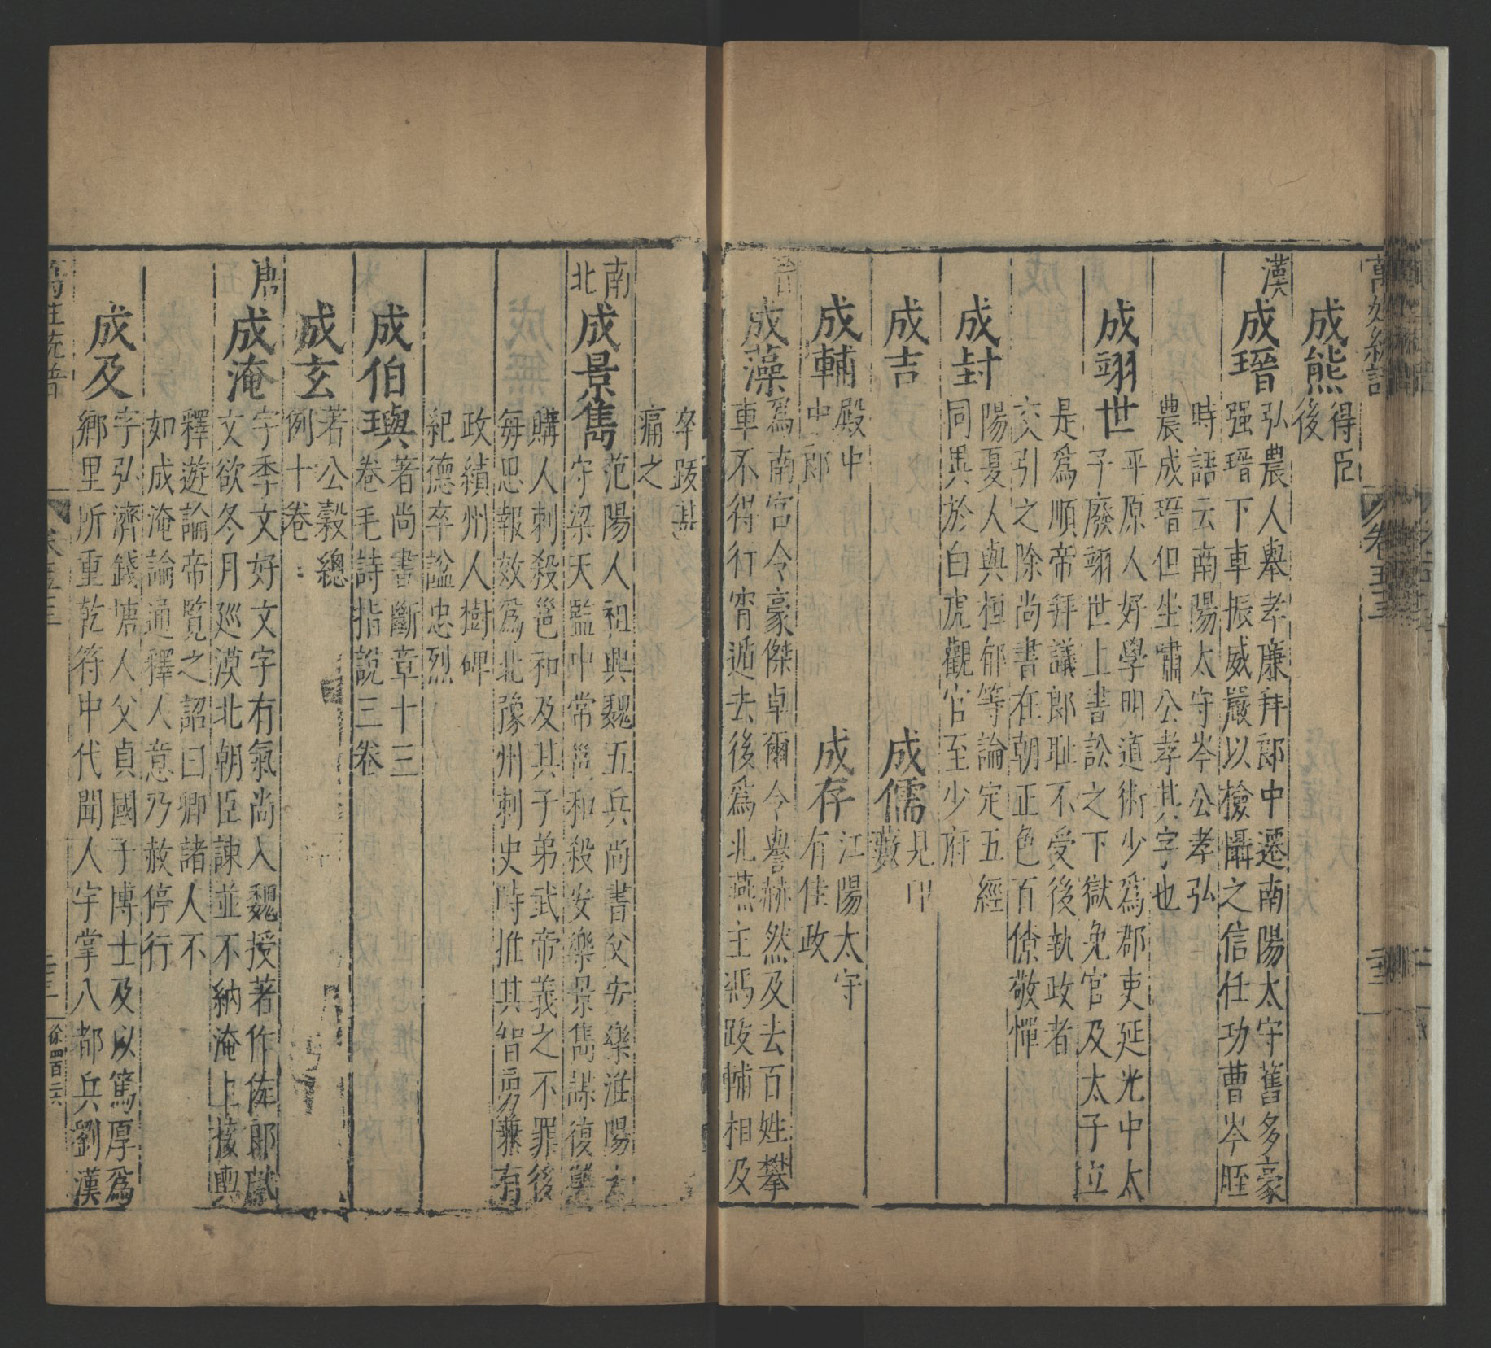 萬姓統譜
卷五十三
成熊
得臣
後
漢
成瑨
弘農人舉孝廉拜郎中遷南陽太守舊多豪
强瑨下車振威嚴以檢攝之信任功曹岑晊
時語云南陽太守岑公孝弘
農成瑨但坐嘯公孝其字也
成翊世
平原人好學明道術少爲郡吏延光中太
子廢翊世上書訟之下獄免官及太子立
是爲順帝拜議郎耻不受後執政者
交引之除尚書在朝正色百僚敬憚
成封
陽夏人與桓郁等論定五經
同異於白虎觀官至少府
成吉
成儒
見印
藪
成輔
殿中
中郎
成存
江陽太守
有佳政
晉
成藻
爲南宮令豪傑卓爾令譽赫然及去百姓攀
車不得行宵遁去後爲北燕主馮跋輔相及
卒跋甚
痛之
南
北
成景雋
范陽人祖興魏五兵尚書父安樂淮陽太
守梁天監中常邕和殺安樂景雋謀復讐
購人刺殺邕和及其子弟武帝義之不罪後
每思報效爲北豫州刺史時推其智勇兼有
政績州人樹碑
紀德卒諡忠烈
成伯璵
著尚書斷章十三
卷毛詩指說三卷
成玄
若公穀總
例十卷
唐
成淹
字季文好文字有氣尚入魏授著作佐郎獻
文欲冬月廵漠北朝臣諫並不納淹上接輿
釋遊論帝覽之詔曰卿諸人不
如成淹論通釋人意乃赦停行
成及
字弘濟錢塘人父貞國子博士及以篤厚爲
鄉里所重乾符中代聞人宇掌八都兵劉漢
萬姓統譜
徐四百六